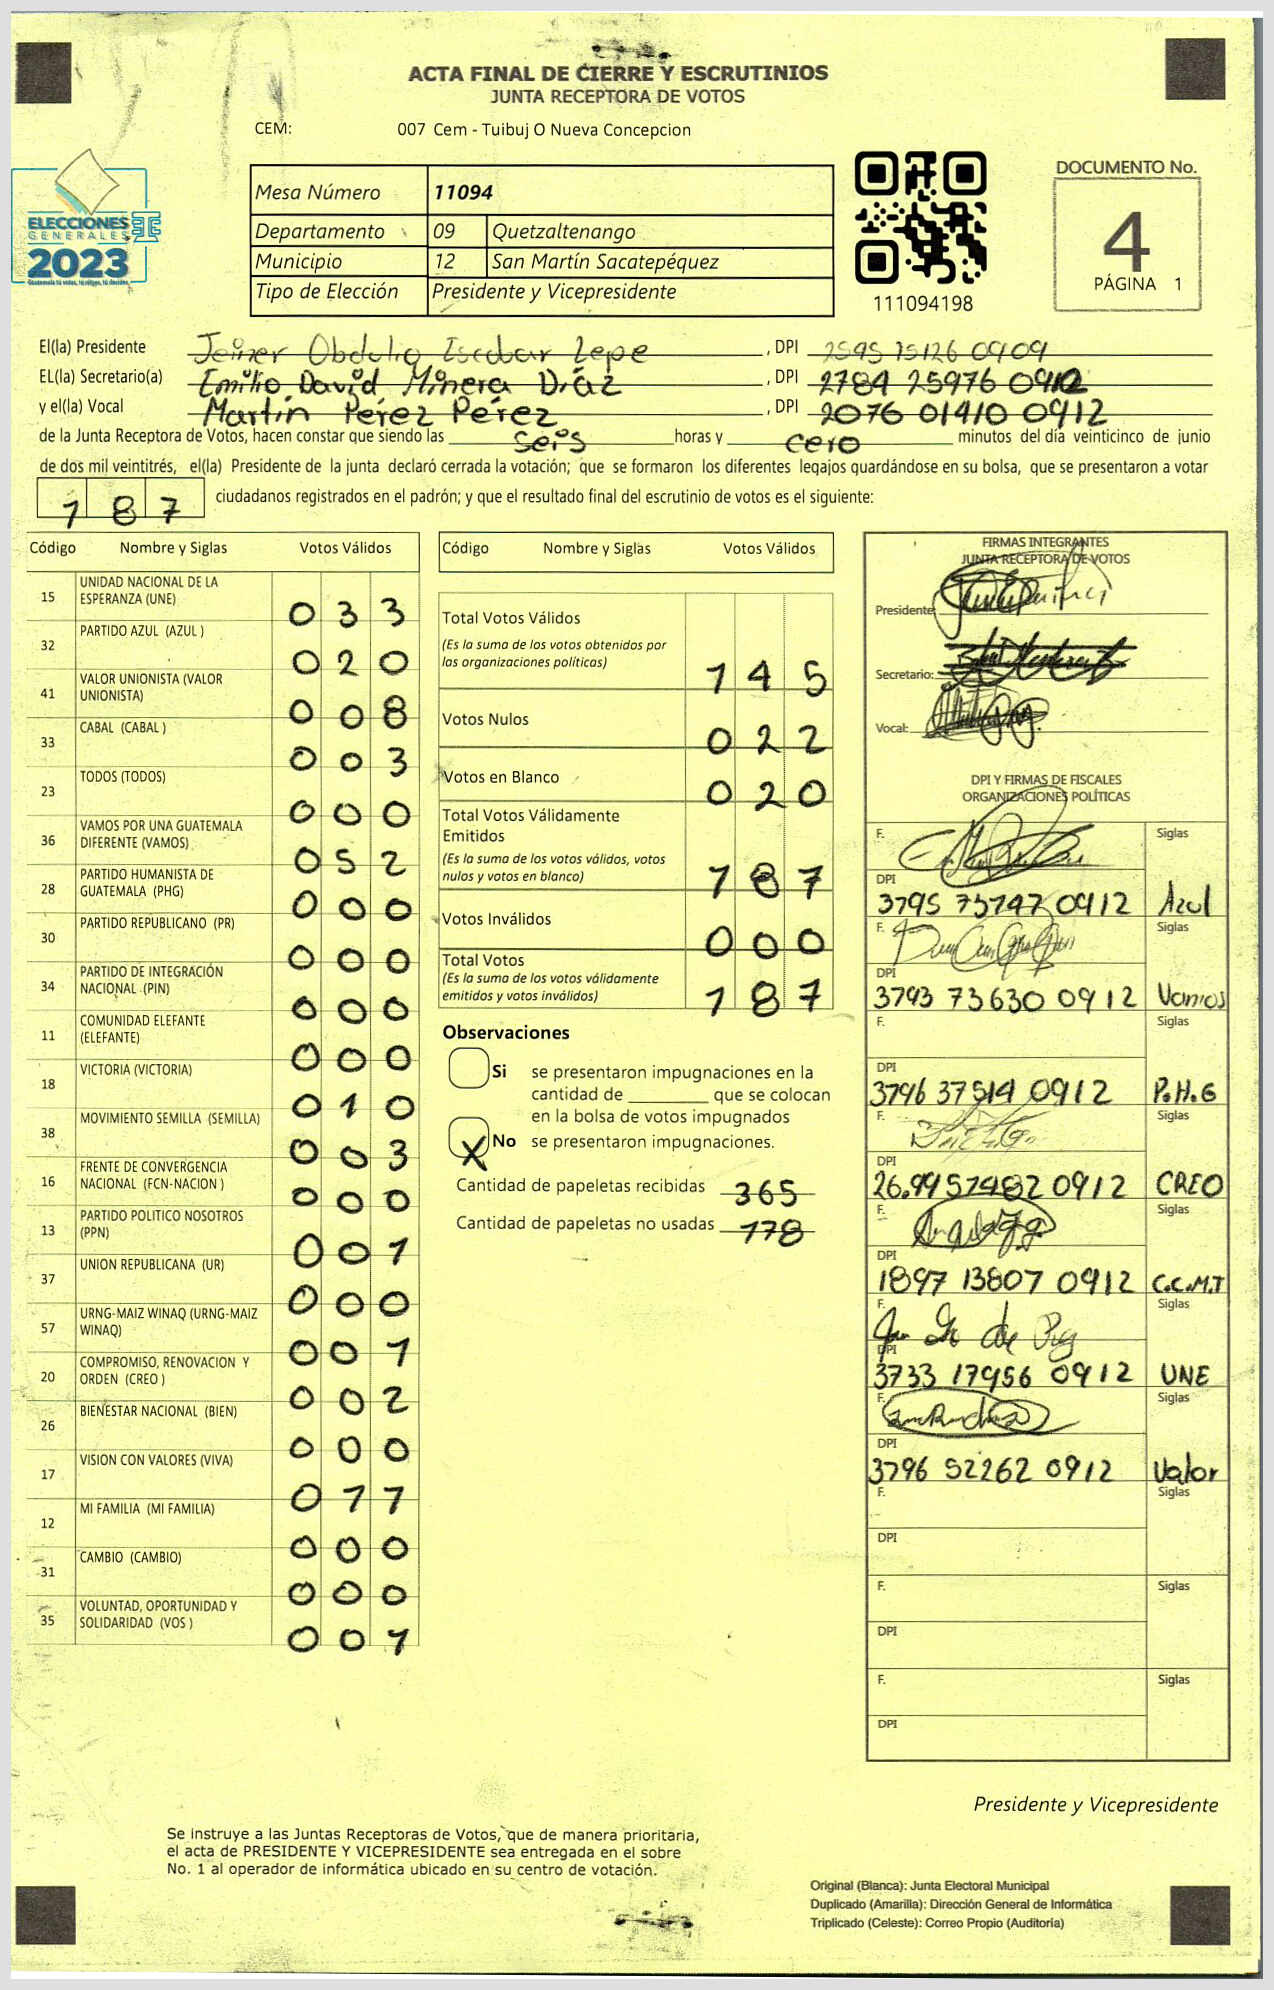 ACTA FINAL DE CIERRE Y ESCRUTINIOS
JUNTA RECEPTORA DE VOTOS
CEM: 007 Cem - Tuibuj O Nueva Concepcion
ELECCIONES
GENERALES
2023
Mesa Número 11094
Departamento 09 Quetzaltenango
Municipio 12 San Martín Sacatepéquez
Tipo de Elección Presidente y Vicepresidente
111094198
DOCUMENTO No.
4
PÁGINA 1
El(la) Presidente Jeiner Obdulio Escobar Lepe, DPI 2595 15126 0909
EL(la) Secretario(a) Emilio David Minera Díaz, DPI 2784 25976 0912
y el(la) Vocal Martín Pérez Pérez, DPI 2076 01410 0912
de la Junta Receptora de Votos, hacen constar que siendo las seis horas y cero minutos del día veinticinco de junio
de dos mil veintitrés, el(la) Presidente de la junta declaró cerrada la votación; que se formaron los diferentes legajos quardándose en su bolsa, que se presentaron a votar
187 ciudadanos registrados en el padrón; y que el resultado final del escrutinio de votos es el siguiente:
Código Nombre y Siglas Votos Válidos
15 UNIDAD NACIONAL DE LA ESPERANZA (UNE) 033
32 PARTIDO AZUL (AZUL ) 020
41 VALOR UNIONISTA (VALOR UNIONISTA) 008
33 CABAL (CABAL ) 003
23 TODOS (TODOS) 000
36 VAMOS POR UNA GUATEMALA DIFERENTE (VAMOS) 052
28 PARTIDO HUMANISTA DE GUATEMALA (PHG) 000
30 PARTIDO REPUBLICANO (PR) 000
34 PARTIDO DE INTEGRACIÓN NACIONAL (PIN) 000
11 COMUNIDAD ELEFANTE (ELEFANTE) 000
18 VICTORIA (VICTORIA) 010
38 MOVIMIENTO SEMILLA (SEMILLA) 003
16 FRENTE DE CONVERGENCIA NACIONAL (FCN-NACION ) 000
13 PARTIDO POLITICO NOSOTROS (PPN) 001
37 UNION REPUBLICANA (UR) 000
57 URNG-MAIZ WINAQ (URNG-MAIZ WINAQ) 001
20 COMPROMISO, RENOVACION Y ORDEN (CREO ) 002
26 BIENESTAR NACIONAL (BIEN) 000
17 VISION CON VALORES (VIVA) 011
12 MI FAMILIA (MI FAMILIA) 000
31 CAMBIO (CAMBIO) 000
35 VOLUNTAD, OPORTUNIDAD Y SOLIDARIDAD (VOS ) 001
Código Nombre y Siglas Votos Válidos
Total Votos Válidos
(Es la suma de los votos obtenidos por
las organizaciones políticas) 145
Votos Nulos 022
Votos en Blanco 020
Total Votos Válidamente
Emitidos
(Es la suma de los votos válidos, votos
nulos y votos en blanco) 187
Votos Inválidos 000
Total Votos
(Es la suma de los votos válidamente
emitidos y votos inválidos) 187
Observaciones
Si se presentaron impugnaciones en la
cantidad de ________ que se colocan
en la bolsa de votos impugnados
X No se presentaron impugnaciones.
Cantidad de papeletas recibidas 365
Cantidad de papeletas no usadas 178
FIRMAS INTEGRANTES
JUNTA RECEPTORA DE VOTOS
Presidente:
Secretario:
Vocal:
DPI Y FIRMAS DE FISCALES
ORGANIZACIONES POLÍTICAS
F. Siglas
DPI
3795 75747 0912 Azul
F. Siglas
DPI
3793 73630 0912 Vamos
F. Siglas
DPI
3796 37514 0912 P.H.G
F. Siglas
DPI
26.99 57482 0912 CREO
F. Siglas
DPI
1897 13807 0912 C.C.M.T
F. Siglas
DPI
3733 17956 0912 UNE
F. Siglas
DPI
3796 52262 0912 Valor
F. Siglas
DPI
F. Siglas
DPI
F. Siglas
DPI
Presidente y Vicepresidente
Se instruye a las Juntas Receptoras de Votos, que de manera prioritaria,
el acta de PRESIDENTE Y VICEPRESIDENTE sea entregada en el sobre
No. 1 al operador de informática ubicado en su centro de votación.
Original (Blanca): Junta Electoral Municipal
Duplicado (Amarilla): Dirección General de Informática
Triplicado (Celeste): Correo Propio (Auditoría)